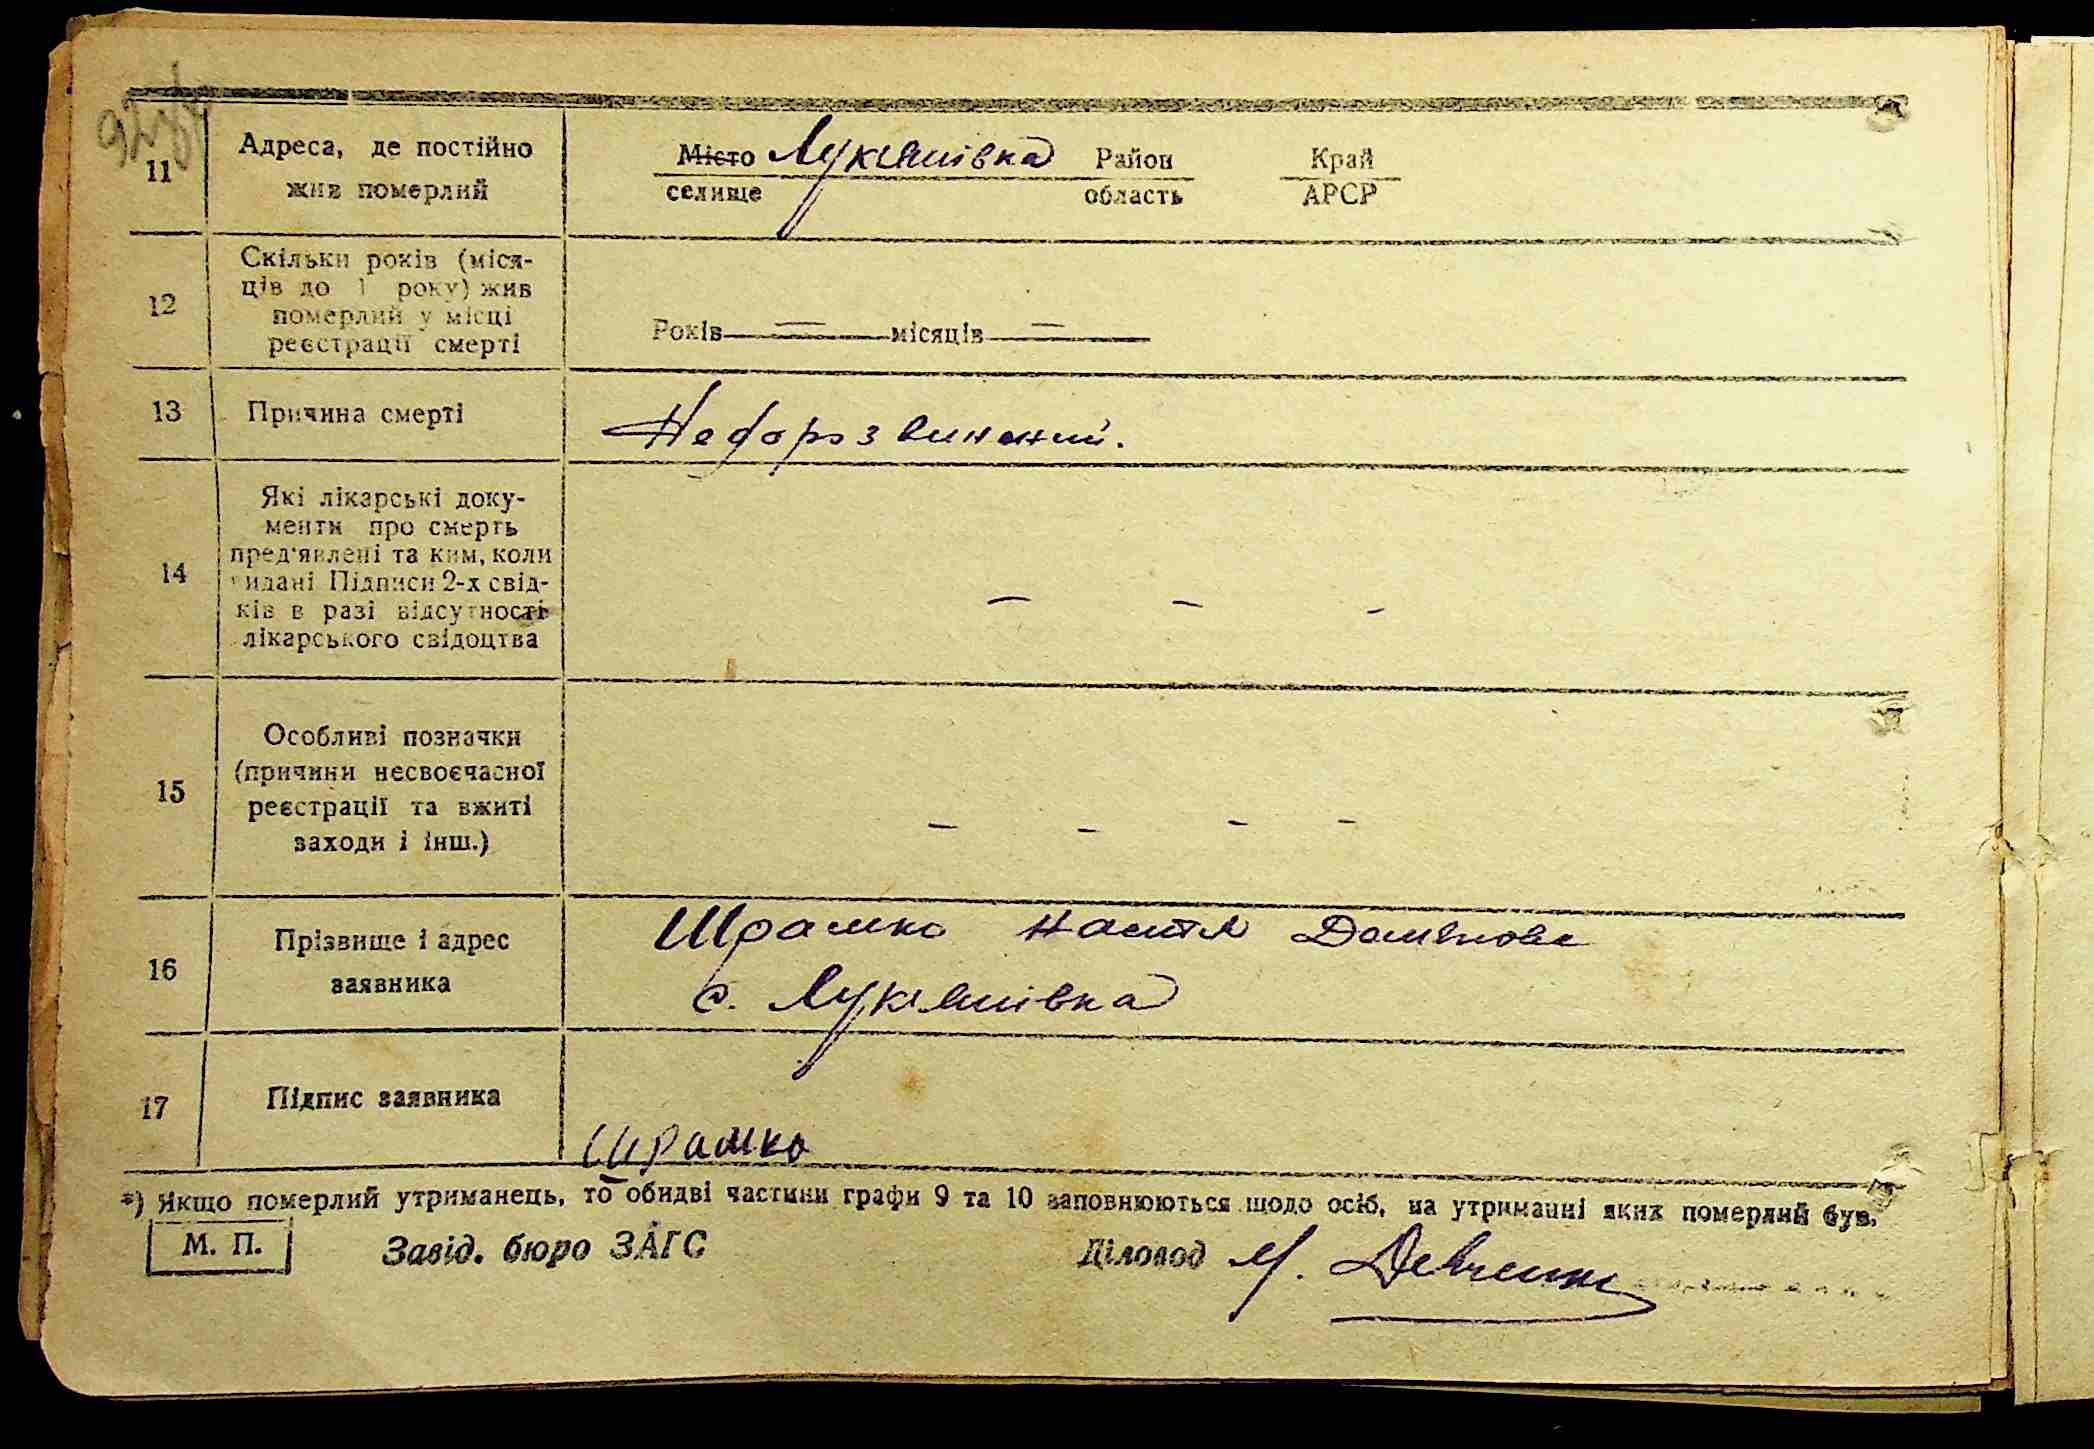 11
Адреса, де постійно
жив померлий
Місто Лукашівка Район Край
селище область АРСР
12
Скільки років (міся-
ців до 1 року) жив
померлий у місці
реєстрації смерті
Років — місяців —
13
Причина смерті
Недорозвинений.
14
Які лікарські доку-
менти про смерть
пред'явлені та ким, коли
видані Підписи 2-х свід-
ків в разі відсутності
лікарського свідоцтва
— — —
15
Особливі позначки
(причини несвоєчасної
реєстрації та вжиті
заходи і інш.)
— — — —
16
Прізвище і адрес
заявника
Шрамко Настя
с. Лукашівка
17
Підпис заявника
Шрамко
*) Якщо померлий утриманець, то обидві частини графи 9 та 10 заповнюються щодо осіб, на утриманні яких померлий був.
М. П. Завід. бюро ЗАГС Діловод М.